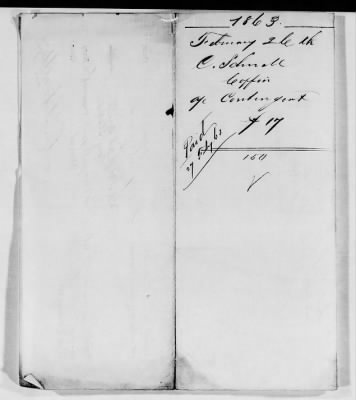 1863.
February 26th
C. Schnell
Coffin
a/c Contingent
$17
Paid
27 Feby 63
160